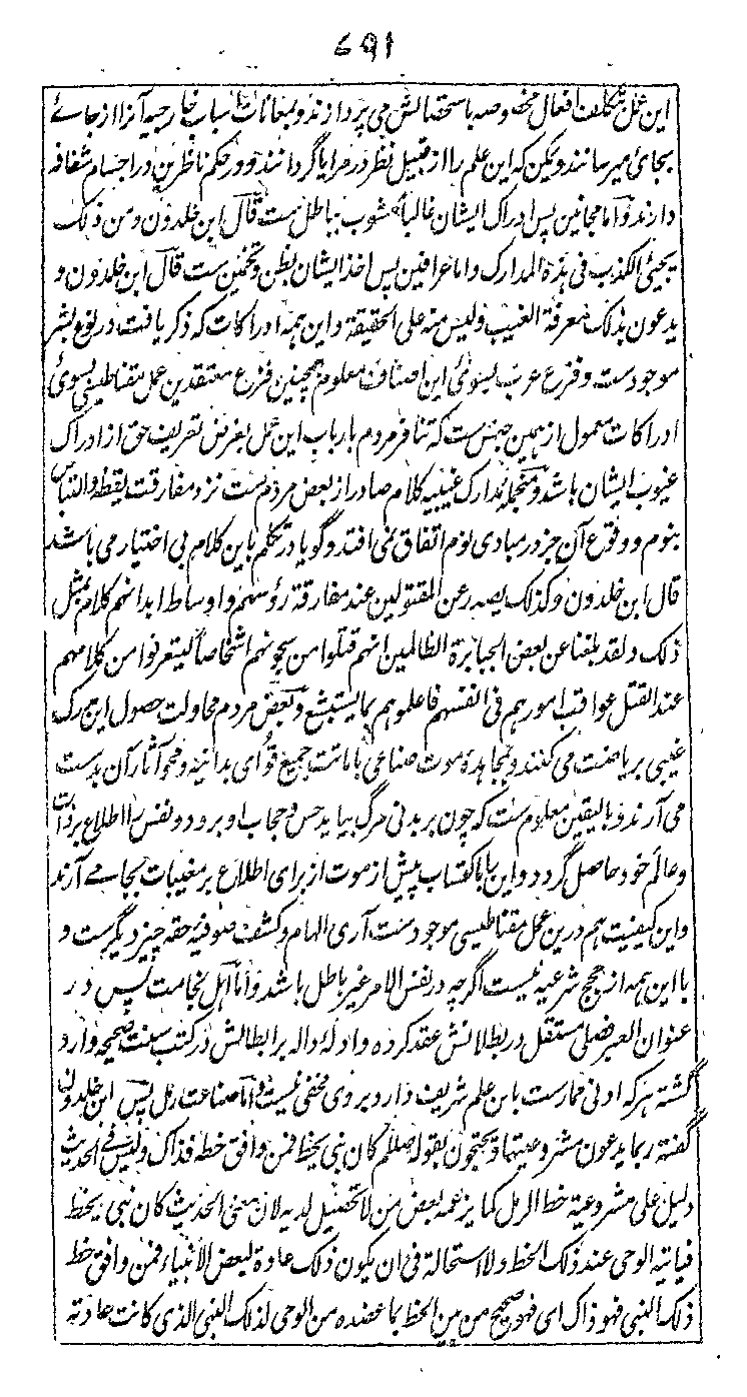 ۶۹۱
این عمل بتکلف افعال مخصوصه باستحصالش می پردازند و بمعانات اسباب خارجیه آنرا از جائے
بجائ میرسانند و یمکن که این علم را از قبیل نظر در مرایا گردانند و در حکم ناظرین در اجسام شفافه
دارند و اما مجانین پس ادراک ایشان غالباً مشوب بباطل ست قال ابن خلدون و من ذلک
یجئ الکذب فی هذه المدارک و اما عرافین پس اخذ ایشان بظن و تخمین ست قال ابن خلدون و
یدعون بذلک معرفة الغیب و لیس منه علی الحقیقة و این همه ادراکات که ذکر یافت در نوع بشر
موجودست و فزع عرب بسوی این اصناف معلوم همچنین فزع معتقدین عمل مقناطیسی بسوی
ادراکات معمول از همین جنس ست که تنافر مردم بارباب این عمل بغرض تعریف حق از ادراک
غیوب ایشان باشد و منجمله مدارک غیبیه کلام صادر از بعض مردم ست نزد مفارقت یقظه و التباس
بنوم و وقوع آن جز در مبادی نوم اتفاق نمی افتد و گویا در تکلم باین کلام بی اختیار می باشد
قال ابن خلدون و کذلک یصدر عن المقتولین عند مفارقة رؤسهم و اوساط ابدانهم کلام بمثل
ذلک و لقد بلغنا عن بعض الجبابرة الظالمین انهم قتلوا من سجونهم اشخاصاً لیتعرفوا من کلامهم
عند القتل عواقب امورهم فی انفسهم فاعلموهم بما یستبشع و بعض مردم محاولت حصول این مدرک
غیبی بریاضت می کنند و بمجاهده موت صناعی باماتت جمیع قوای بدانیه و محو آثار آن بدست
می آرند و بالیقین معلوم ست که چون بر بدن مرگ بیاید حس و حجاب او برود و نفس را اطلاع بر ذات
و عالم خود حاصل گردد و این را باکتساب پیش از موت از برای اطلاع بر مغیبات بجا مے آرند
و این کیفیت هم درین عمل مقناطیسی موجودست آری الهام و کشف صوفیه حقه چیز دیگرست و
با این همه از حجج شرعیه نیست اگرچه در نفس الامر غیر باطل باشد و اما اهل نجامت پس در
عنوان العبر فصلی مستقل در بطلانش عقد کرده و ادله داله بر ابطالش در کتب سنت صحیحه وارد
گشته هرکه ادنی ممارست باین علم شریف دارد بروی مخفی نیست و اما صناعت رمل پس ابن خلدون
گفته ربما یدعون مشروعیتها و یحتجون بقوله صللم کان نبی یخط فمن وافق خطه فذاک و لیس فی الحدیث
دلیل علی مشروعیة خط الرمل کما یزعمه بعض من لا تحصیل لدیه لان معنی الحدیث کان نبی یخط
فیاتیه الوحی عند ذلک الخط و لا استحالة فی ان یکون ذلک عادة لبعض الانبیاء فمن وافق خط
ذلک النبی فهو ذاک ای فهو صحیح من بین الخط بما عضده من الوحی لذلک النبی الذی کانت عادته